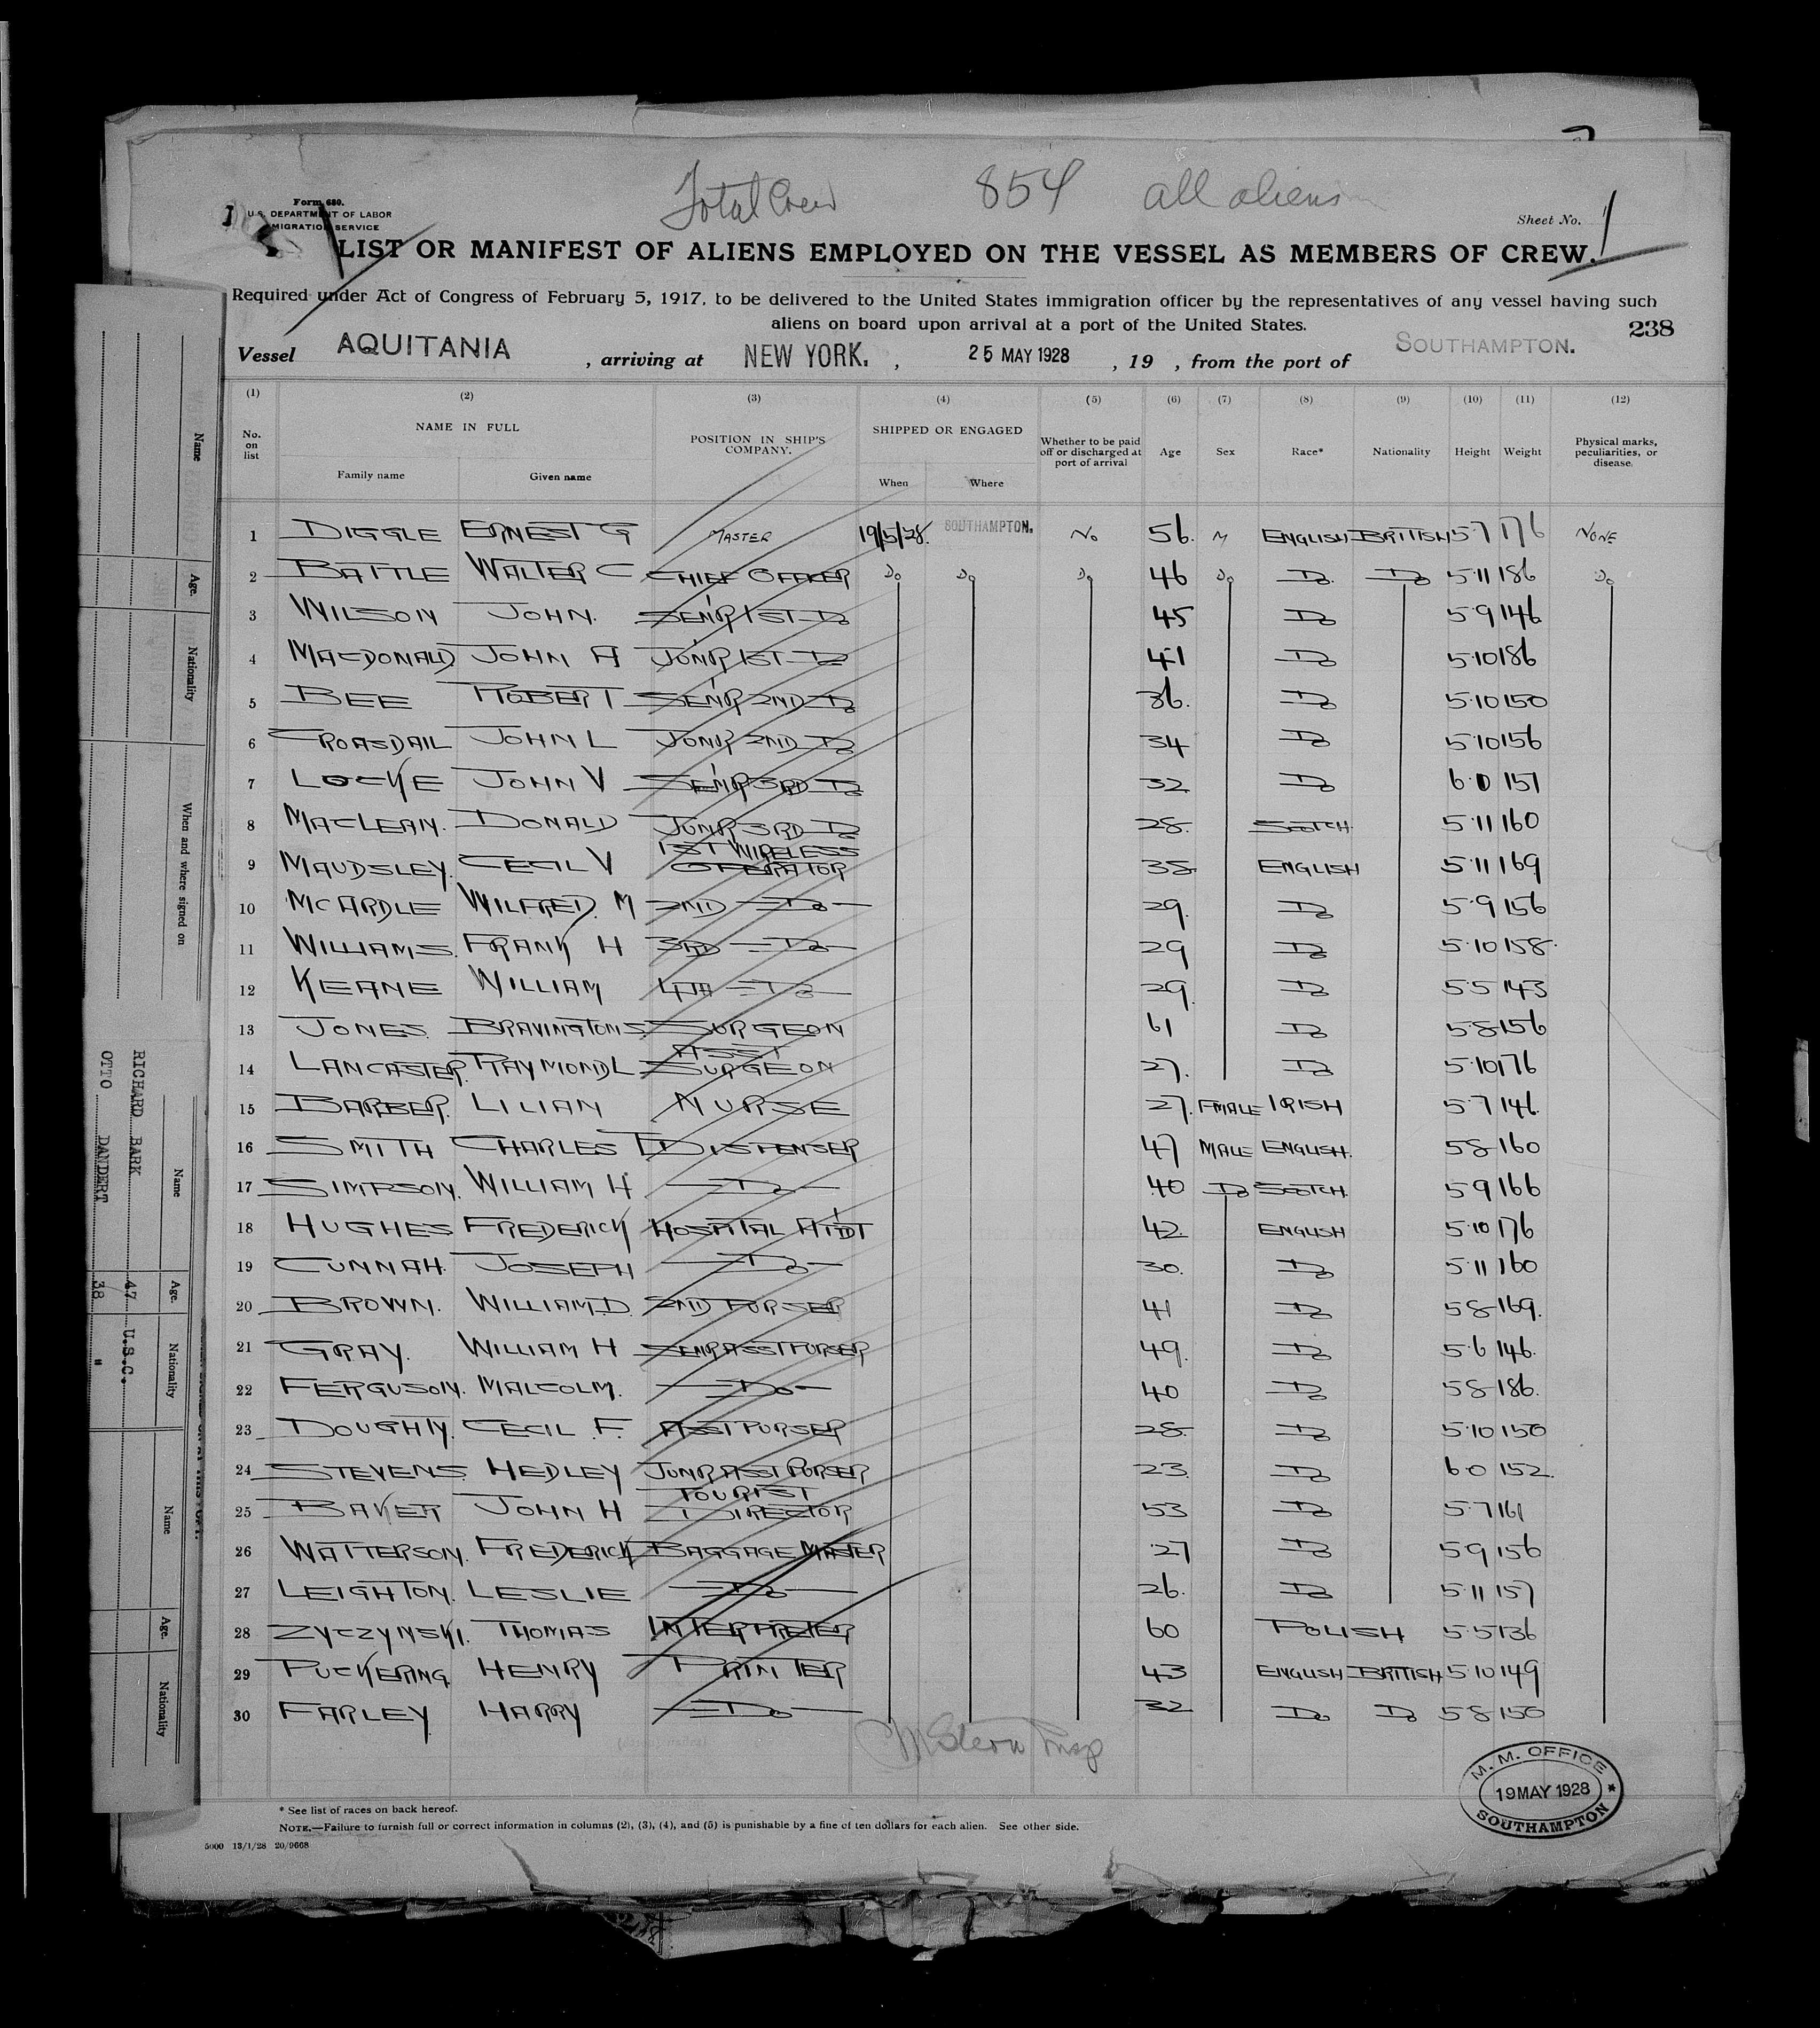 Total Crew 854 all aliens
Form 680.
U.S. DEPARTMENT OF LABOR
IMMIGRATION SERVICE
Sheet No. 1
LIST OR MANIFEST OF ALIENS EMPLOYED ON THE VESSEL AS MEMBERS OF CREW.
Required under Act of Congress of February 5, 1917, to be delivered to the United States immigration officer by the representatives of any vessel having such
aliens on board upon arrival at a port of the United States.
238
Vessel AQUITANIA , arriving at NEW YORK. , 25 MAY 1928 , 19 , from the port of SOUTHAMPTON.
(1) (2) (3) (4) (5) (6) (7) (8) (9) (10) (11) (12)
No. on list NAME IN FULL Family name Given name POSITION IN SHIP'S COMPANY. SHIPPED OR ENGAGED When Where Whether to be paid off or discharged at port of arrival Age Sex Race* Nationality Height Weight Physical marks, peculiarities, or disease.
1 DIGGLE ERNEST G MASTER 19/5/28. SOUTHAMPTON. NO 56. M ENGLISH BRITISH 5·7 176 NONE
2 BATTLE WALTER C CHIEF OFFICER Do Do Do 46 Do Do. Do 5·11 186 Do
3 WILSON JOHN. SEN'R 1ST Do 45 Do 5·9 146
4 MACDONALD JOHN A JUN'R 1ST Do 41 Do 5·10 186
5 BEE ROBERT SEN'R 2ND Do 36. Do 5·10 150
6 CROASDAIL JOHN L JUNR 2ND Do 34 Do 5·10 156
7 LOCKE JOHN V SEN'R 3RD Do 32 Do 6·0 151
8 MACLEAN. DONALD JUNR 3RD Do 28. SCOTCH. 5·11 160
9 MAUDSLEY. CECIL V 1ST WIRELESS OPERATOR 38 ENGLISH 5·11 169
10 MCARDLE WILFRED. M 2ND Do 29. Do 5·9 156
11 WILLIAMS. FRANK H 3RD Do 29 Do 5·10 158.
12 KEANE WILLIAM 4TH Do 29. Do 5·5 143
13 JONES. BRAVINGTON S SURGEON 61 Do 5·8 156
14 LANCASTER. RAYMOND L ASST SURGEON 27. Do 5·10 176
15 BARBER. LILIAN NURSE 27. FMALE IRISH 5·7 146.
16 SMITH CHARLES T DISPENSER 47 MALE ENGLISH. 5 8 160
17 SIMPSON. WILLIAM H Do 40 Do SCOTCH. 5 9 166
18 HUGHES FREDERICK HOSPITAL ATT'DT 42. ENGLISH 5·10 176
19 CUNNAH. JOSEPH Do 30. Do 5·11 160
20 BROWN. WILLIAM.D. 2ND PURSER 41 Do 5 8 169.
21 GRAY. WILLIAM H SENR ASST PURSER 49. Do 5·6 146.
22 FERGUSON. MALCOLM. Do 40 Do 5 8 186.
23 DOUGHTY. CECIL .F. ASST PURSER 28. Do 5·10 150
24 STEVENS HEDLEY JUNR ASST PURSER 23. Do 6 0 152.
25 BAKER JOHN H TOURIST DIRECTOR 53 Do 5·7 161
26 WATTERSON. FREDERICK BAGGAGE MASTER 27 Do 5 9 156
27 LEIGHTON. LESLIE Do 26. Do 5·11 157
28 ZYCZYNSKI. THOMAS INTERPRETER 60 POLISH 5·5 136
29 PUCKERING HENRY PRINTER 43 ENGLISH BRITISH 5·10 149
30 FARLEY HARRY Do 32 Do Do 5 8 150
* See list of races on back hereof.
NOTE.—Failure to furnish full or correct information in columns (2), (3), (4), and (5) is punishable by a fine of ten dollars for each alien. See other side.
5000 13/1/28 20/9668
M. M. OFFICE
19 MAY 1928
SOUTHAMPTON
Name Age. Nationality When and where signed on
Name Age. Nationality
RICHARD BARK 47 U.S.C.
OTTO DANDERT 38 "
Name Age. Nationality